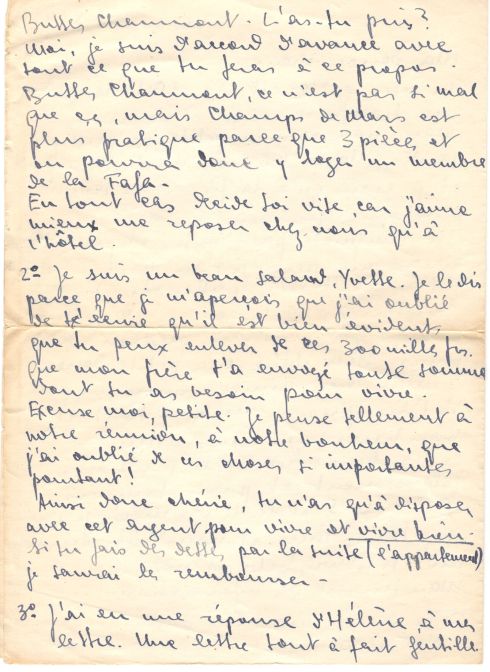 Buttes Chaumont. L'as-tu pris?
Moi, je suis d'accord d'avance avec
tout ce que tu feras à ce propos.
Buttes Chaumont, ce n'est pas si mal
que ça, mais Champs de Mars est
plus pratique parce que 3 pièces et
on pourra donc y loger un membre
de la Fafa.
En tout cas décide toi vite, car j'aime
mieux me reposer chez nous qu'à
l'hôtel.
2º Je suis un beau salaud, Yvette. Je le dis
parce que je m'aperçois que j'ai oublié
de t'écrire qu'il est bien évident
que tu peux enlever de ces 300 mille frs.
que mon frère t'a envoyé toute somme
dont tu as besoin pour vivre.
Excuse moi, petite. Je pense tellement à
notre réunion, à notre bonheur, que
j'ai oublié de ces choses si importantes
pourtant!
Ainsi donc chérie, tu n'as qu'à disposer
avec cet argent pour vivre et vivre bien.
Si tu fais des dettes par la suite (l'appartement)
je saurai les rembourser -
3º J'ai eu une réponse d'Hélène à ma
lettre. Une lettre tout à fait gentille.